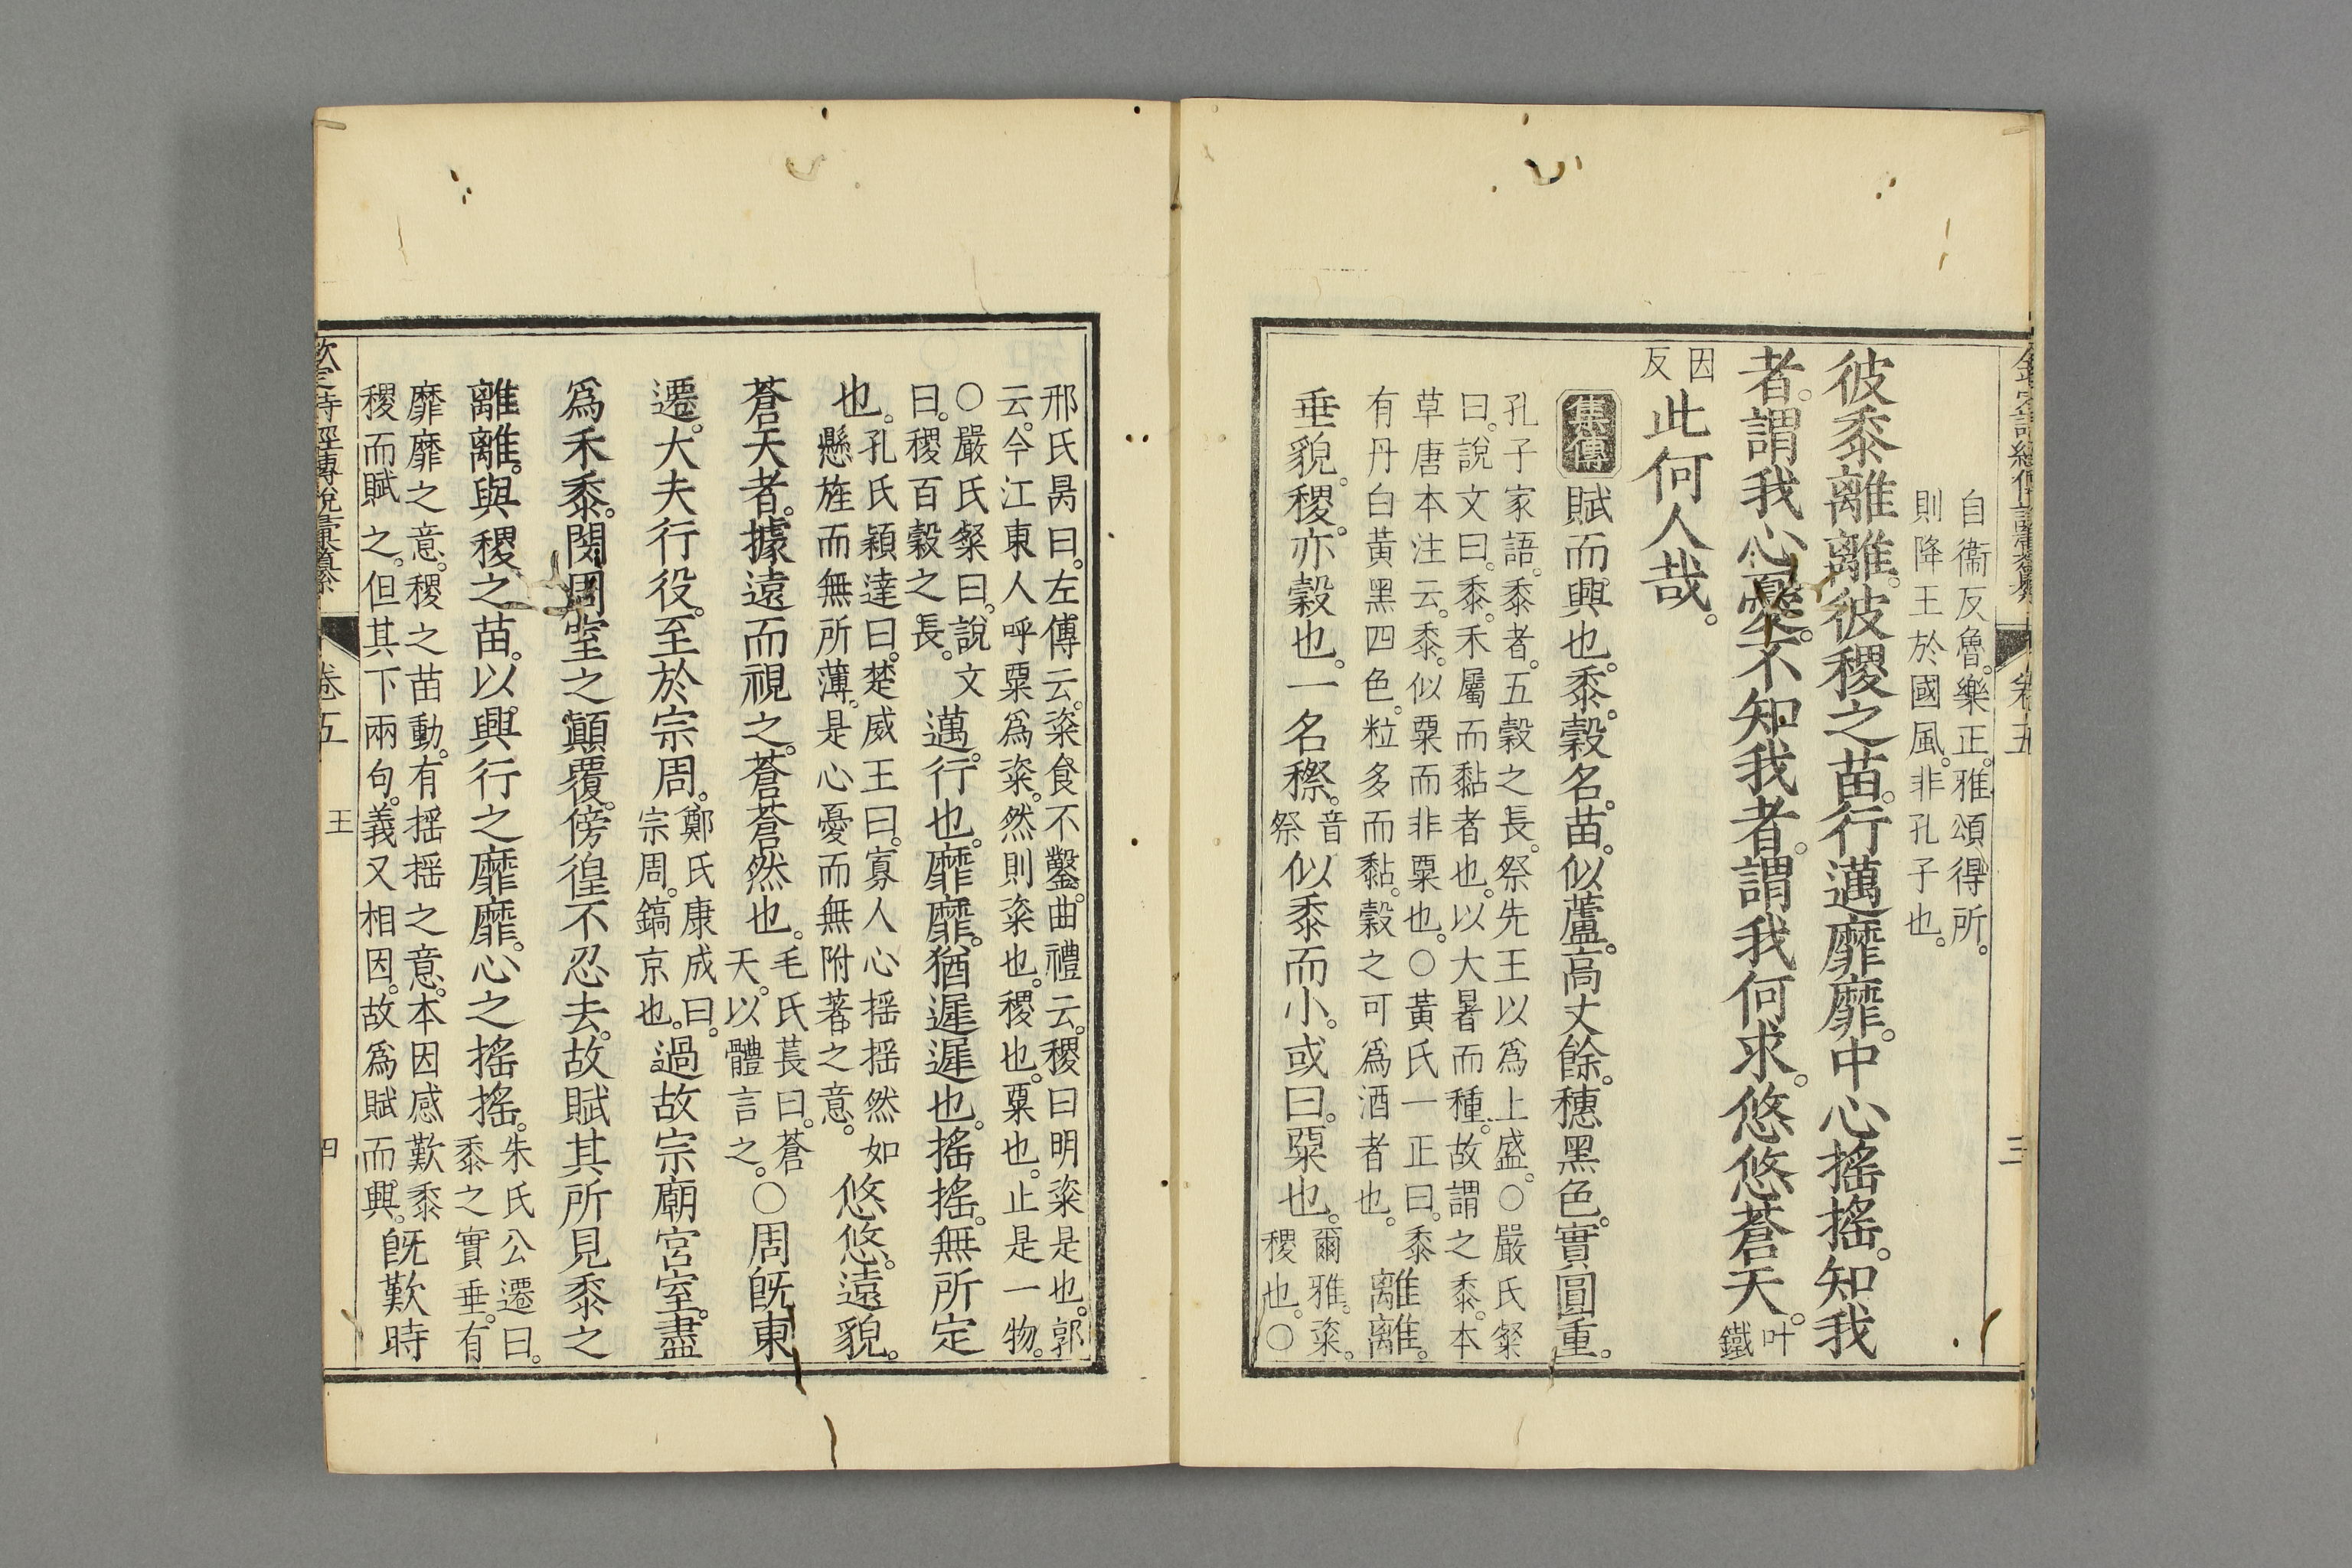 自衞反魯。樂正。雅頌得所。
則降王於國風。非孔子也。
彼黍離離。彼稷之苗。行邁靡靡。中心搖搖。知我
者。謂我心憂。不知我者。謂我何求。悠悠蒼天。叶鐵
因反此何人哉。
集傳 賦而興也。黍。穀名。苗。似蘆。高丈餘。穗黑色。實圓重。
孔子家語。黍者。五穀之長。祭先王以爲上盛。○嚴氏粲
曰。說文曰。黍。禾屬而黏者也。以大暑而種。故謂之黍。本
草唐本注云。黍。似粟而非粟也。○黃氏一正曰。黍
有丹白黃黑四色。粒多而黏。穀之可爲酒者也。離離。
垂貌。稷。亦穀也。一名穄。音祭似黍而小。或曰。粟也。爾雅。粢。稷也。○
邢氏昺曰。左傳云。粢食不鑿。曲禮云。稷曰明粢是也。郭
云。今江東人呼粟爲粢。然則粢也。稷也。粟也。止是一物。
○嚴氏粲曰。說文
曰。稷百穀之長。邁。行也。靡靡。猶遲遲也。搖搖。無所定
也。孔氏穎達曰。楚威王曰。寡人心搖搖然如
懸旌而無所薄。是心憂而無附著之意。悠悠。遠貌。
蒼天者。據遠而視之。蒼蒼然也。毛氏萇曰。蒼天。以體言之。○周旣東
遷。大夫行役。至於宗周。鄭氏康成曰。宗周。鎬京也。過故宗廟宮室。盡
爲禾黍。閔周室之顚覆。傍徨不忍去。故賦其所見黍之
離離。與稷之苗。以興行之靡靡。心之搖搖。朱氏公遷曰。黍之實垂。有
靡靡之意。稷之苗動。有搖搖之意。本因感歎黍
稷而賦之。但其下兩句。義又相因。故爲賦而興。旣歎時
卷五
王
四
三